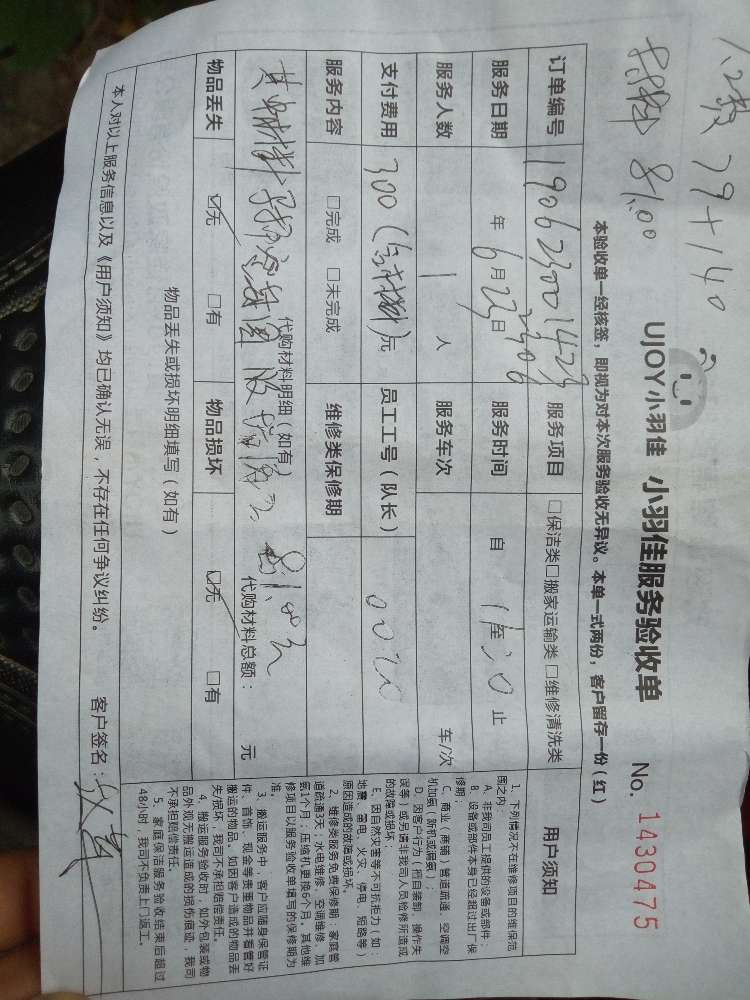 79+140
81.00
UJOY小羽佳 小羽佳服务验收单 No. 1430475
本验收单一经核签，即视为对本次服务验收无异议。本单一式两份，客户留存一份(红)
订单编号 190623001423 2906 服务项目 □保洁类□搬家运输类□维修清洗类
服务日期 年 6月23日 服务时间 自 至 止
服务人数 1 人 服务车次 车/次
支付费用 300 (含材料)元 员工工号(队长) 0020
服务内容 □完成 □未完成 维修类保修期
代购材料明细(如有)
81.00元 代购材料总额： 元
物品丢失 ☑无 □有 物品损坏 ☑无 □有
物品丢失或损坏明细填写(如有)
本人对以上服务信息以及《用户须知》均已确认无误，不存在任何争议纠纷。 客户签名：
用户须知
1、下列情况不在维修项目的维保范
围之内：
A、非我司员工提供的设备或部件；
B、设备或部件本身已经超过出厂保
修期；
C、商业(商铺)管道疏通、空调空
机加氟(新机或漏氟)；
D、因客户行为(把自装卸、操作失
误等)或另请非我司人员检修所造成
的故障或损坏
E、因自然灾害等不可抗拒力(如：
地震、雷电、火灾、停电、短路等)
原因造成的故障或损坏。
2、维修类服务免费保修期：家庭管
道疏通3天；水电维修、空调维修、加
氨1个月，压缩机更换6个月。其他维
修项目以服务验收单填写的保修期为
准。
3、搬运服务中，客户应随身保管证
件、首饰、现金等贵重物品并看管好
搬运的物品。如因客户造成的物品丢
失/损坏，我司不承担赔偿责任。
4、搬运服务验收时，如外包装或物
品外观无搬运造成的损伤痕迹，我司
不承担赔偿责任。
5、家庭保洁服务验收结束后超过
48小时，我司不负责上门返工。